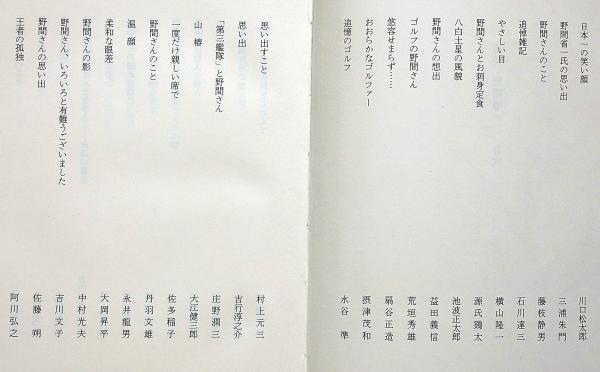 日本一の笑い顔 川口松太郎
野間省一氏の思い出 三浦朱門
野間さんのこと 藤枝静男
追悼雑記 石川達三
やさしい目 横山隆一
野間さんとお刺身定食 源氏鶏太
八白土星の風貌 池波正太郎
野間さんの想出 益田義信
ゴルフの野間さん 荒垣秀雄
悠容せまらず…… 扇谷正造
おおらかなゴルファー 摂津茂和
追憶のゴルフ 水谷準
思い出すこと 村上元三
思い出 吉行淳之介
「第三艦隊」と野間さん 庄野潤三
山椿 大江健三郎
一度だけ親しい席で 佐多稲子
野間さんのこと 丹羽文雄
温顔 永井龍男
柔和な眼差 大岡昇平
野間さんの影 中村光夫
野間さん、いろいろと有難うございました 吉川文子
野間さんの思い出 佐藤朔
王者の孤独 阿川弘之